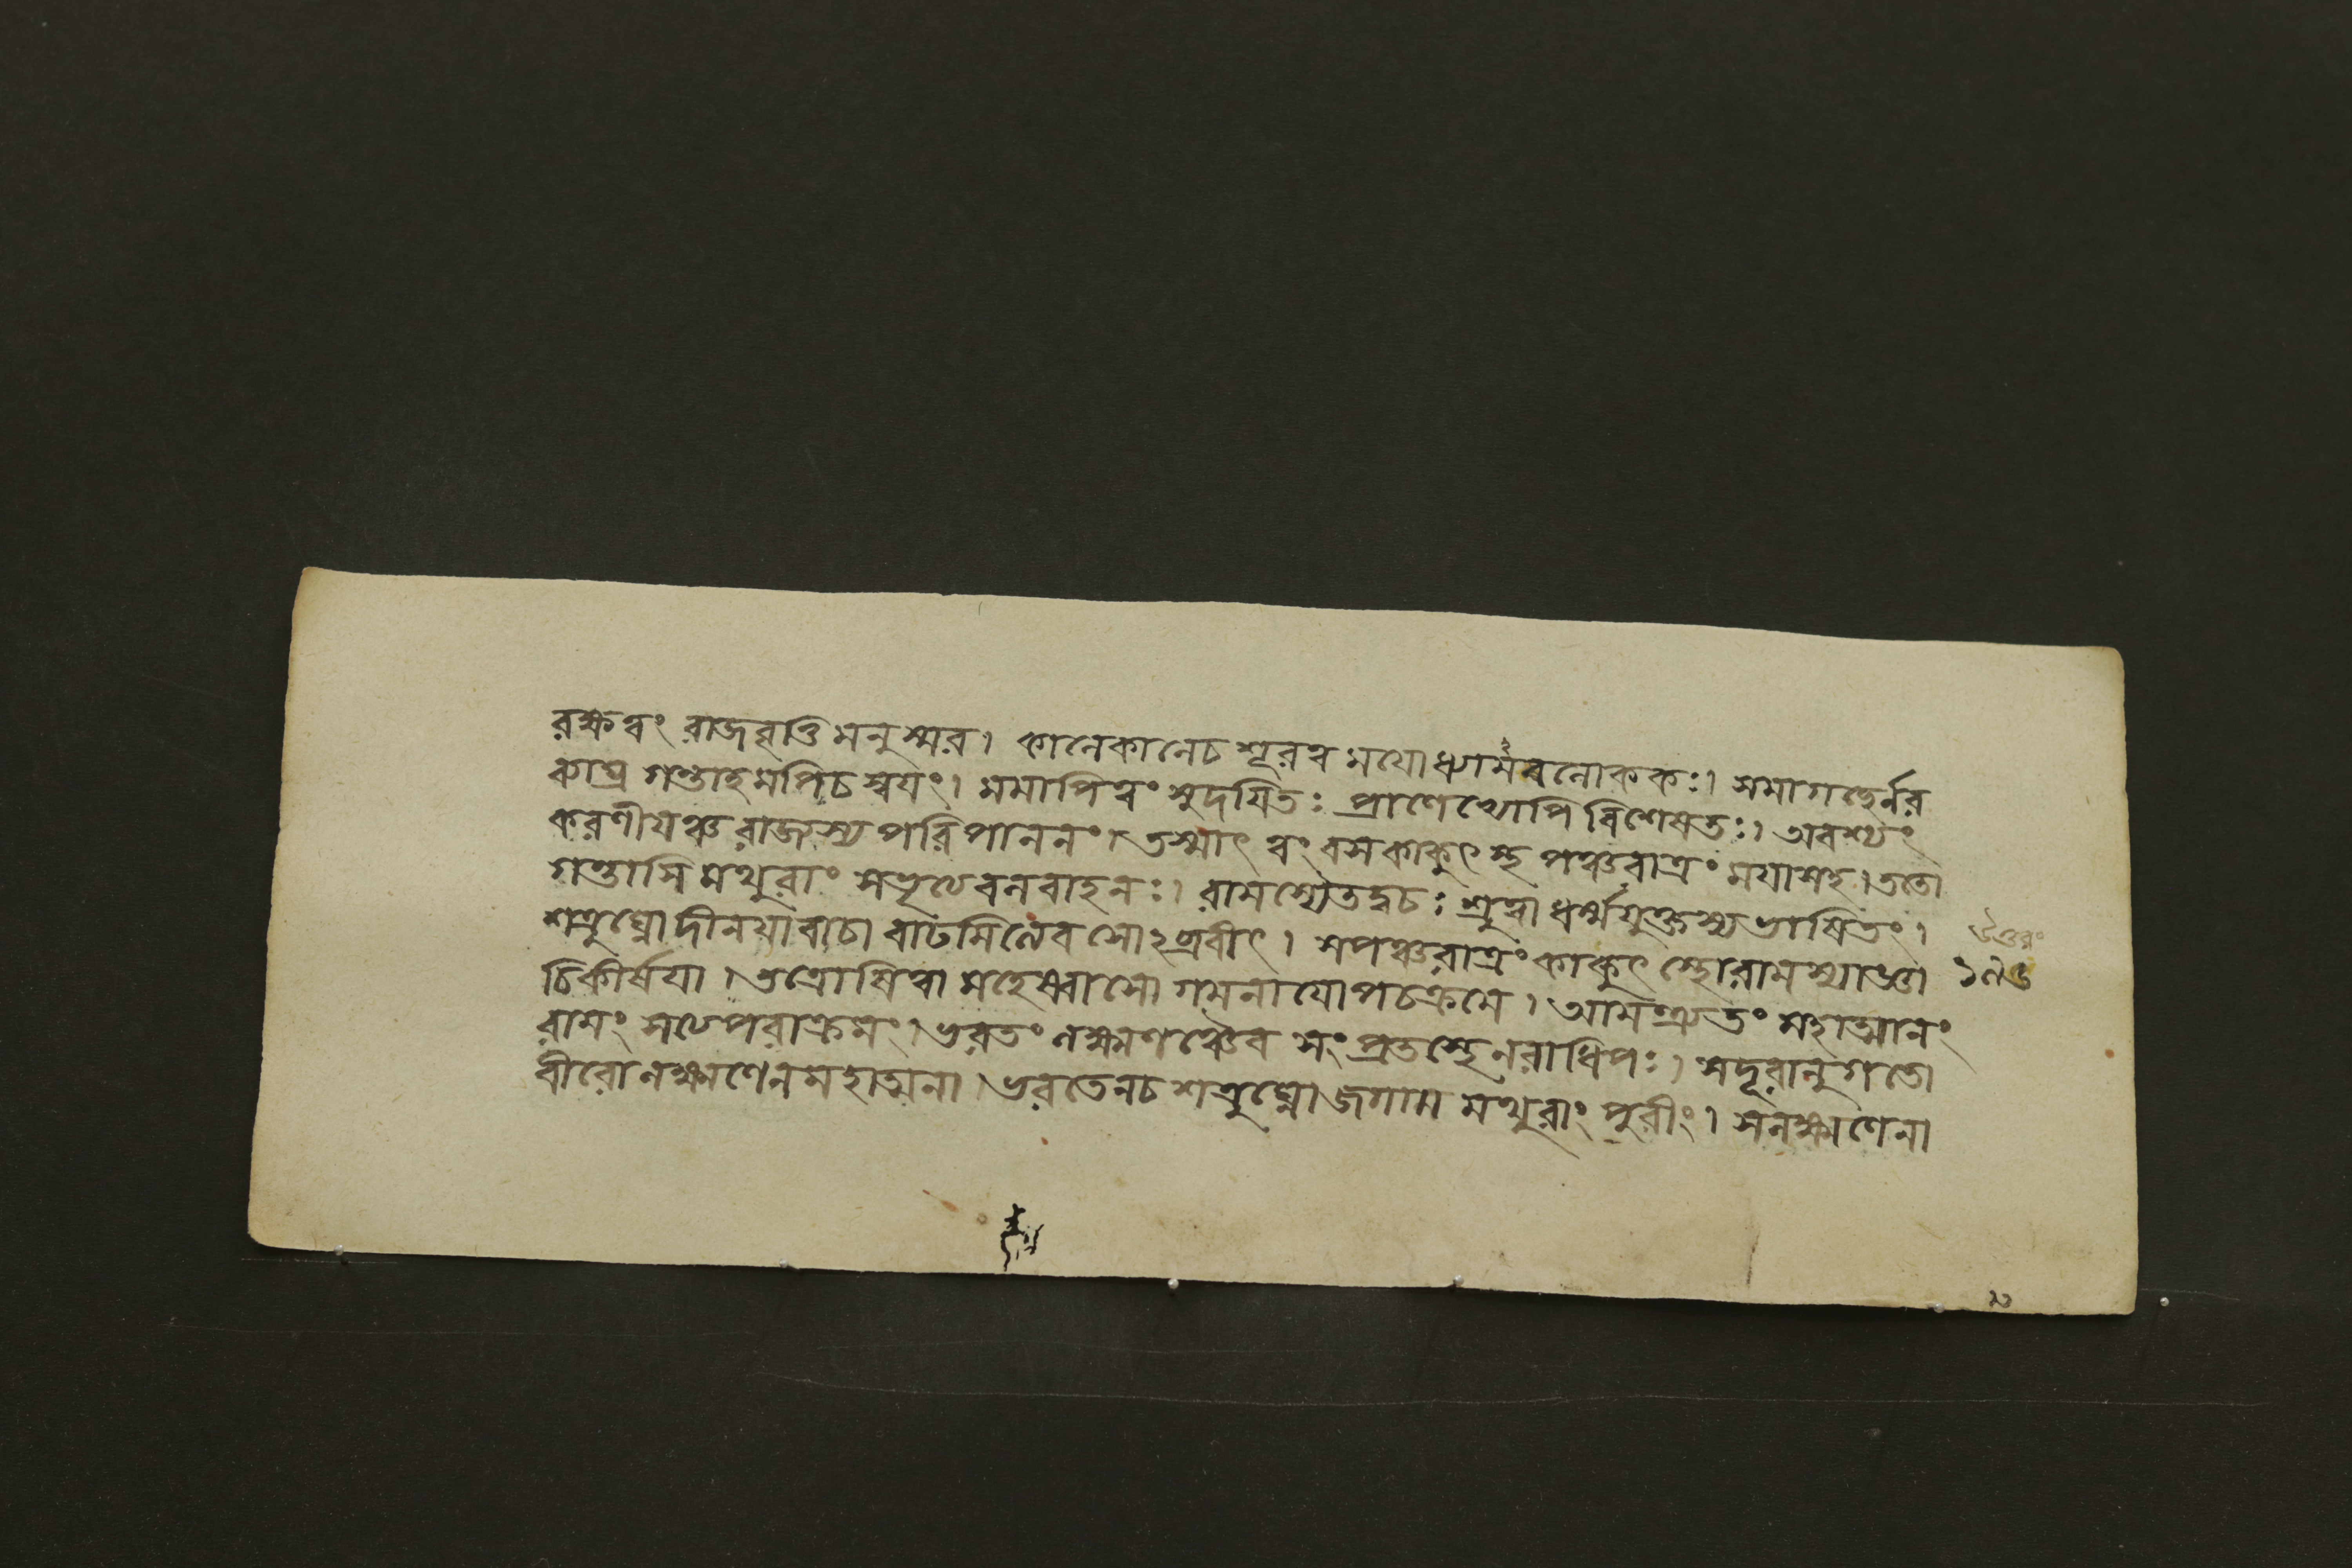 রক্ষত্বং রাজবৃত্তিমনুস্মর। কালেকালেচ শূরত্বমযোধ্যামবলোককঃ। সমাগচ্ছের্নর
ব্যাঘ্র গন্তাহমপিচ স্বযং। মমাপিত্বং সুদযিতঃ প্রাণেভ্যোপি বিশেষতঃ। অবশ্যং
করণীযঞ্চ রাজ্যস্য পরিপালনং। তস্মাৎ ত্বং বসকাকুৎস্থ পঞ্চরাত্রং মযাসহ। ততো
গন্তাসি মথুরাং সভৃত্যবলবাহনঃ। রামস্যৈতদ্বচঃ শ্রুত্বা ধর্ম্মযুক্তস্যভাষিতং।
শত্রুঘ্নোদীনযাবাচা বাঢমিত্যেবসোঽব্রবীৎ। সপঞ্চরাত্রং কাকুৎস্থোরামস্যাজ্ঞা
চিকীর্ষযা। তত্রোষিত্বা মহেষ্বাসো গমনাযোপচক্রমে। আমন্ত্র্যতং মহাত্মানং
রামং সত্যপরাক্রমং। ভরতং লক্ষ্মণঞ্চৈব সংপ্রতস্থেনরাধিপঃ। সদূরানুগতো
বীরোলক্ষ্মণেনমহাত্মনা। ভরতেনচ শত্রুঘ্নোজগাম মথুরাং পুরীং। সলক্ষ্মণেনা
উত্তরং